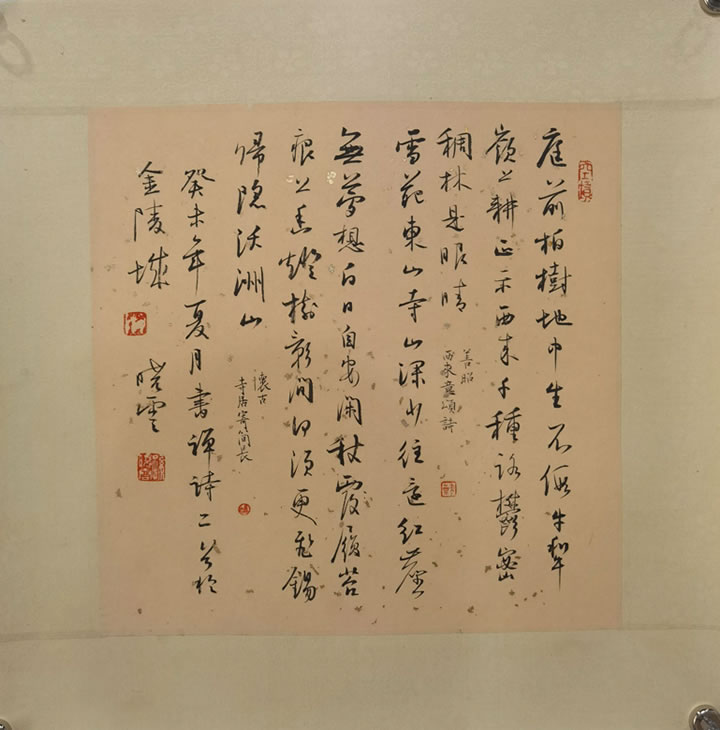 庭前柏樹地中生不假牛犁
嶺上耕正示西來千種路欝密
稠林是眼睛
善昭
西來意頌詩
雪苑東山寺山深少往還紅塵
無夢想白日自安閑杖履苔
痕上香燈樹影間何須更飛錫
歸隱沃洲山
懷古
寺居寄簡長
癸未年夏月書禪詩二首於
金陵城
曉雲